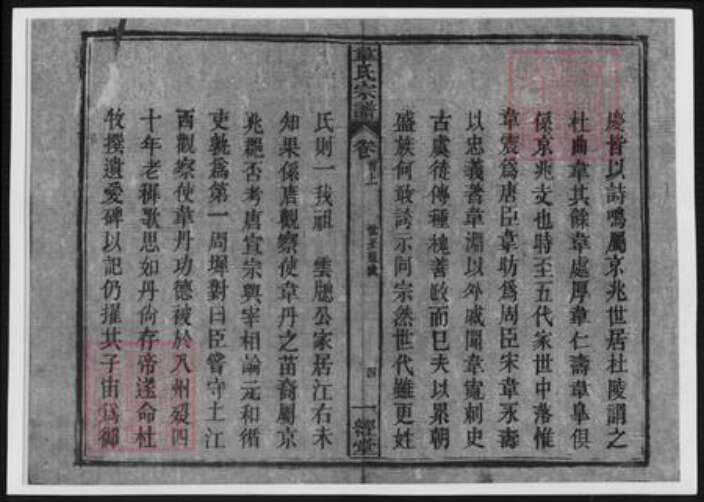 慶皆以詩鳴屬京兆世居杜陵謂之
杜曲韋其餘韋處厚韋仁壽韋臯俱
係京兆支也時至五代家世中落惟
韋震爲唐臣韋昉爲周臣宋韋永壽
以忠義著韋淵以外戚聞韋寬刺史
古虞徒傳種槐善政而已夫以累朝
盛族何敢誇示同宗然世代雖更姓
韋氏宗譜 卷首上 四 一經堂
氏則一我祖 雲牕公家居江右未
知果係唐觀察使韋丹之苗裔屬京
兆郡否考唐宣宗與宰相論元和循
吏孰爲第一周墀對曰臣嘗守土江
西觀察使韋丹功德被於八州歿四
十年老稺歌思如丹尙存帝遂命杜
牧撰遺愛碑以記仍擢其子宙爲御